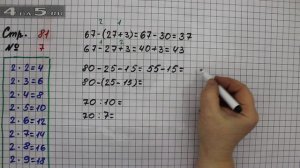 4 на 5.ru
Стр. 81
№ 7
2 · 2 = 4
2 · 3 = 6
2 · 4 = 8
2 · 5 = 10
2 · 6 = 12
2 · 7 = 14
2 · 8 = 16
2 · 9 = 18
2 1
67-(27+3)=67-30=37
1 2
67-27+3=40+3=43
80-25-15=55-15=
80-(25-15)=
70:10=
70:7=